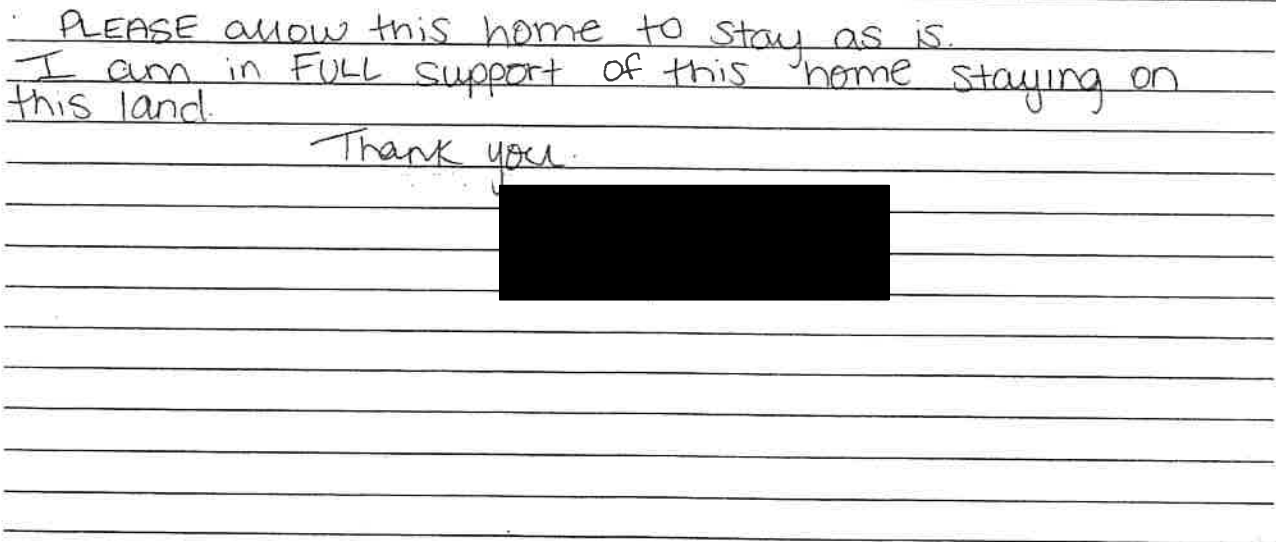 PLEASE allow this home to stay as is.
I am in FULL support of this home staying on
this land.
Thank you.